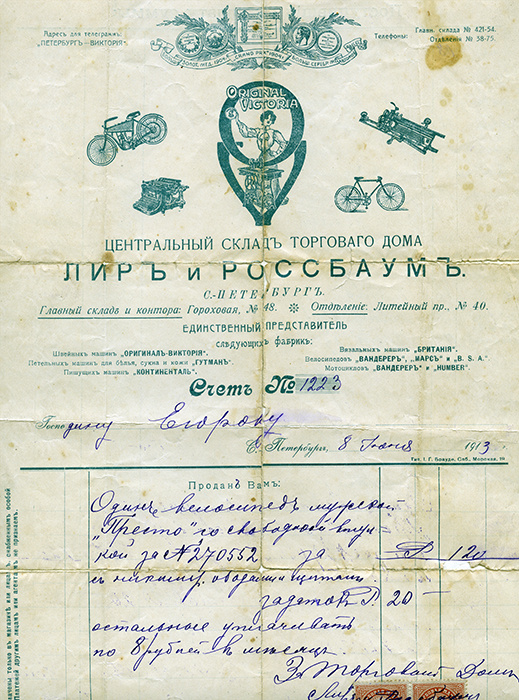 Адресъ для телеграммъ:
"ПЕТЕРБУРГЪ-ВИКТОРІЯ".
Телефоны: Главн. склада № 421-54.
Отдѣленія № 38-75.
ORIGINAL
VICTORIA
ЦЕНТРАЛЬНЫЙ СКЛАДЪ ТОРГОВАГО ДОМА
ЛИРЪ и РОССБАУМЪ.
С.-ПЕТЕРБУРГЪ.
Главный складъ и контора: Гороховая, № 48. Отдѣленіе: Литейный пр., № 40.
ЕДИНСТВЕННЫЙ ПРЕДСТАВИТЕЛЬ
СЛѢДУЮЩИХЪ ФАБРИКЪ:
Швейныхъ машинъ "ОРИГИНАЛЪ-ВИКТОРІЯ".
Петельныхъ машинъ для бѣлья, сукна и кожи "ГУТМАНЪ".
Пишущихъ машинъ "КОНТИНЕНТАЛЬ".
Вязальныхъ машинъ "БРИТАНІЯ".
Велосипедовъ "ВАНДЕРЕРЪ", "МАРСЪ" и "B. S. A."
Мотоцикловъ "ВАНДЕРЕРЪ" и "HUMBER".
Счетъ № 1223
Господину Егорову
С. Петербургъ, 8 Іюня 1913 г.
Тип. І. Г.
Проданъ Вамъ:
Одинъ велосипедъ мужской
"Престо" со свободной втул
кой за № 270552 за Р. 120
съ никкилир. ободами и щитами
задатокъ Р. 20 -
остальные уплачивать
по 8 рублей въ мѣсяцъ
За Торговый Домъ